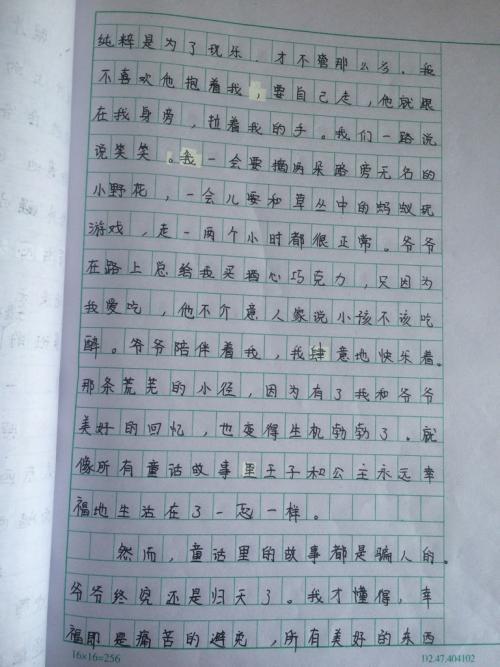 纯粹是为了玩乐，才不管那么多。我
不喜欢他抱着我，要自己走，他就跟
在我身旁，拉着我的手。我们一路说
说笑笑。我一会要摘两朵路旁无名的
小野花，一会儿要和草丛中的蚂蚁玩
游戏，走一两个小时都很正常。爷爷
在路上总给我买酒心巧克力，只因为
我爱吃，他不介意人家说小孩不该吃
醉。爷爷陪伴着我，我肆意地快乐着。
那条荒芜的小径，因为有了我和爷爷
美好的回忆，也变得生机勃勃了。就
像所有童话故事里王子和公主永远幸
福地生活在了一起一样。
然而，童话里的故事都是骗人的。
爷爷终究还是归天了。我才懂得，幸
福即是痛苦的避免，所有美好的东西
16×16=256 D2.47.404102